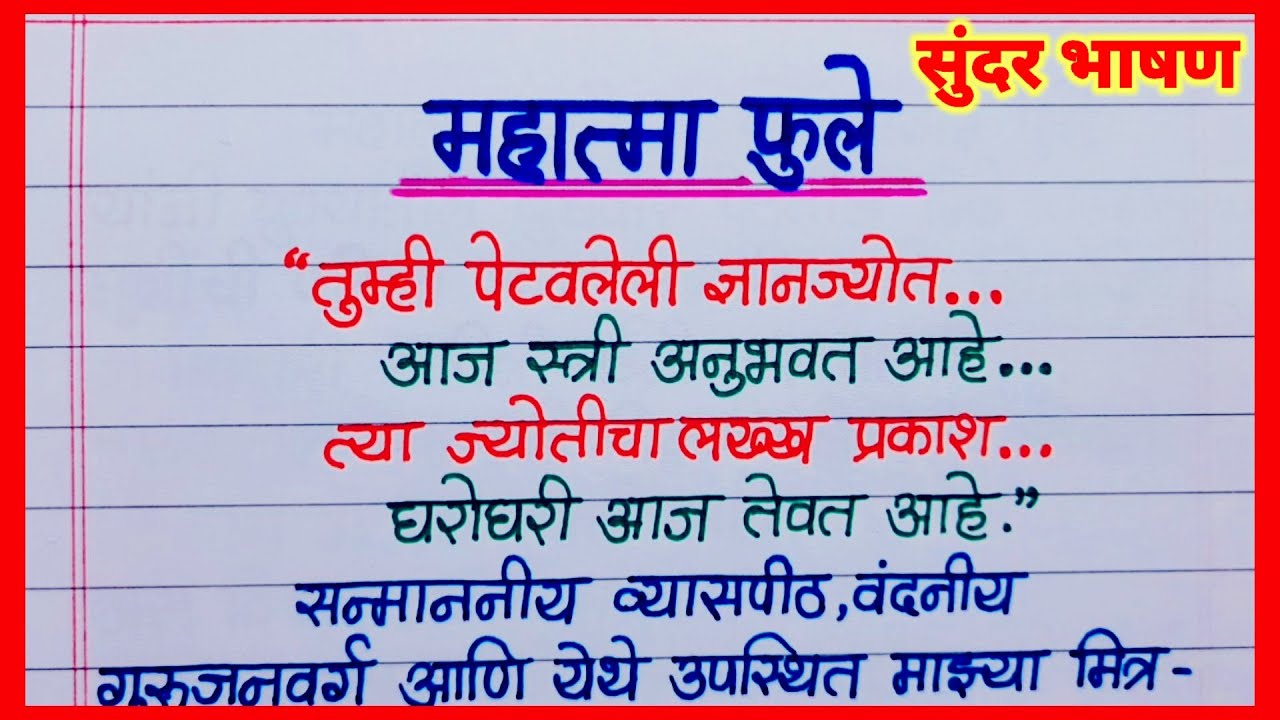 सुंदर भाषण
महात्मा फुले
“तुम्ही पेटवलेली ज्ञानज्योत...
आज स्त्री अनुभवत आहे...
त्या ज्योतीचा लख्ख प्रकाश...
घरोघरी आज तेवत आहे.”
सन्माननीय व्यासपीठ, वंदनीय
गुरुजनवर्ग आणि येथे उपस्थित माझ्या मित्र-